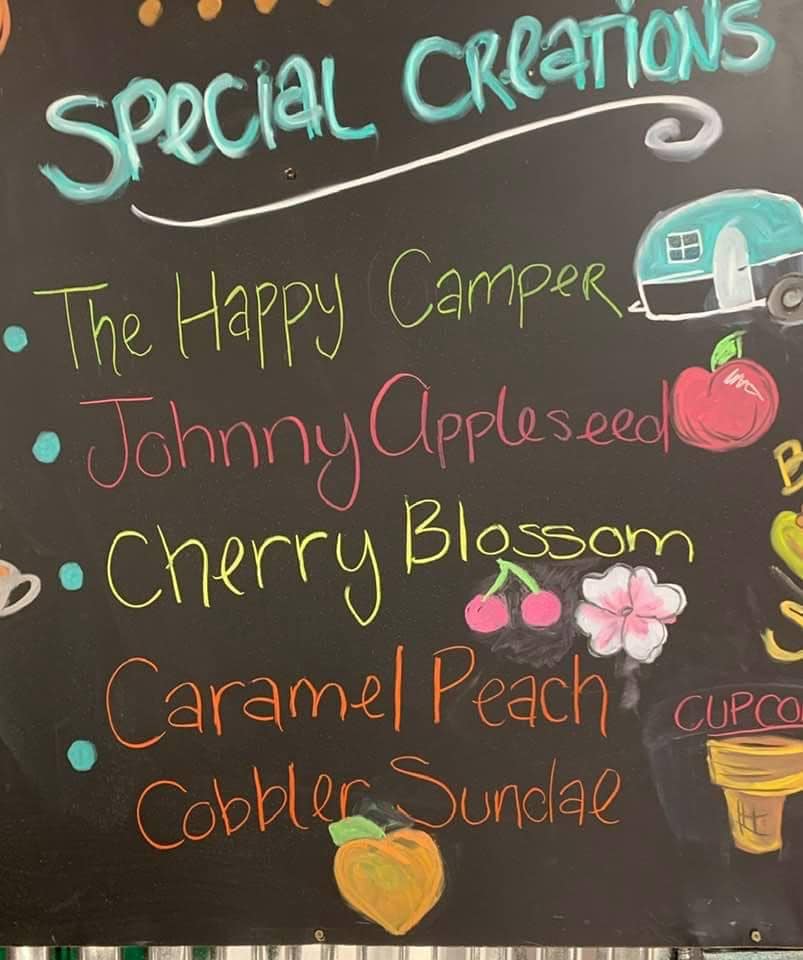 Special Creations
The Happy Camper
Johnny Appleseed
Cherry Blossom
Caramel Peach
Cobbler Sundae